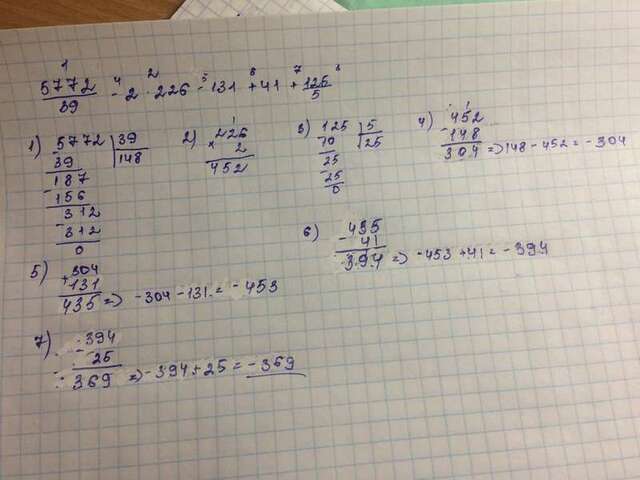 5772/39 - 2 · 226 - 131 + 41 + 125/5
1) 5772 | 39
39 | 148
187
156
312
312
0
2) × 226
2
452
3) 125 | 5
10 | 25
25
25
0
4) - 452
148
304 => 148 - 452 = - 304
5) + 304
131
435 => - 304 - 131 = - 453
6) - 435
41
394 => - 453 + 41 = - 394
7) - 394
25
369 => - 394 + 25 = - 369